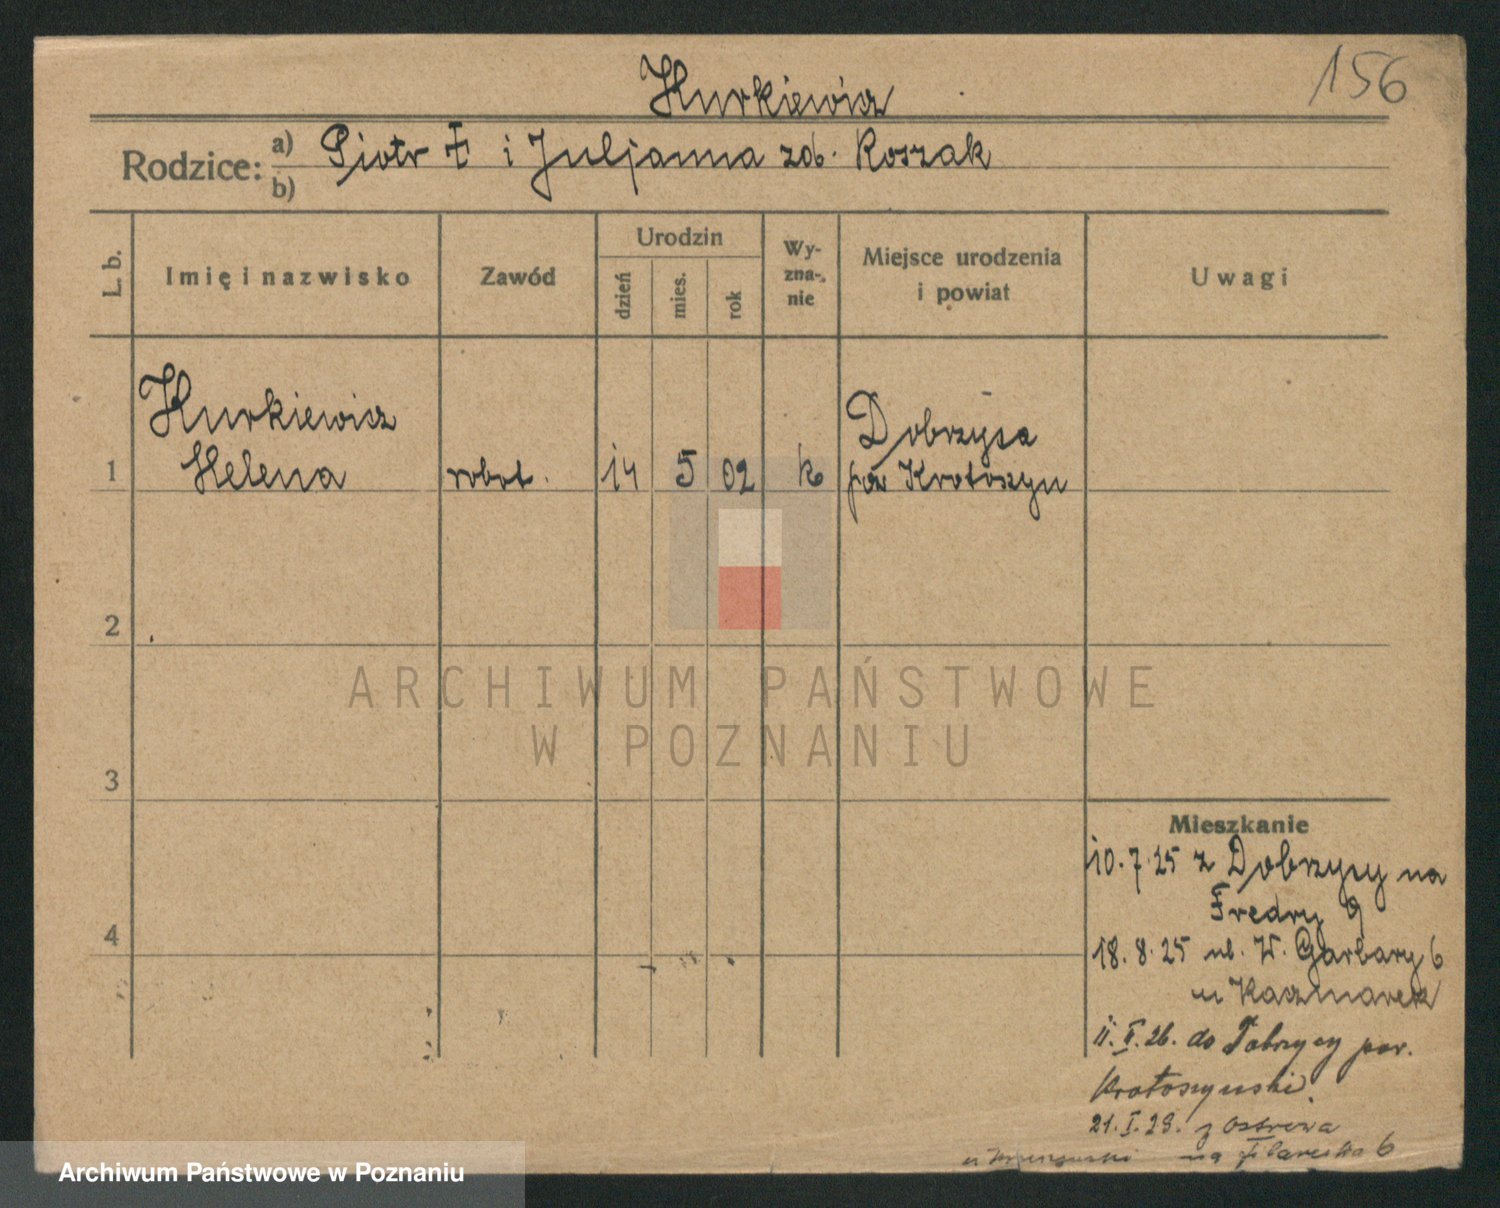 156
Hurkiewicz
Rodzice: a) Piotr Ŧ i Juljanna zob. Roszak
b)
L. b.
Imię i nazwisko
Zawód
Urodzin
dzień
mies.
rok
Wy-
zna-
nie
Miejsce urodzenia
i powiat
Uwagi
Hurkiewicz
Dobrzyca
1 Helena robot. 14 5 02 k pow Krotoszyn
2
ARCHIWUM PAŃSTWOWE
W POZNANIU
3
Mieszkanie
10.7.25 z Dobrzycy na
Fredry 9
4
18.8.25 ul. W. Garbary 6
u Kaczmarek
11.II.26. do Dobrzycy pow.
Krotoszyński.
21.I.29. z Ostrowa
na Filarecka 6
Archiwum Państwowe w Poznaniu